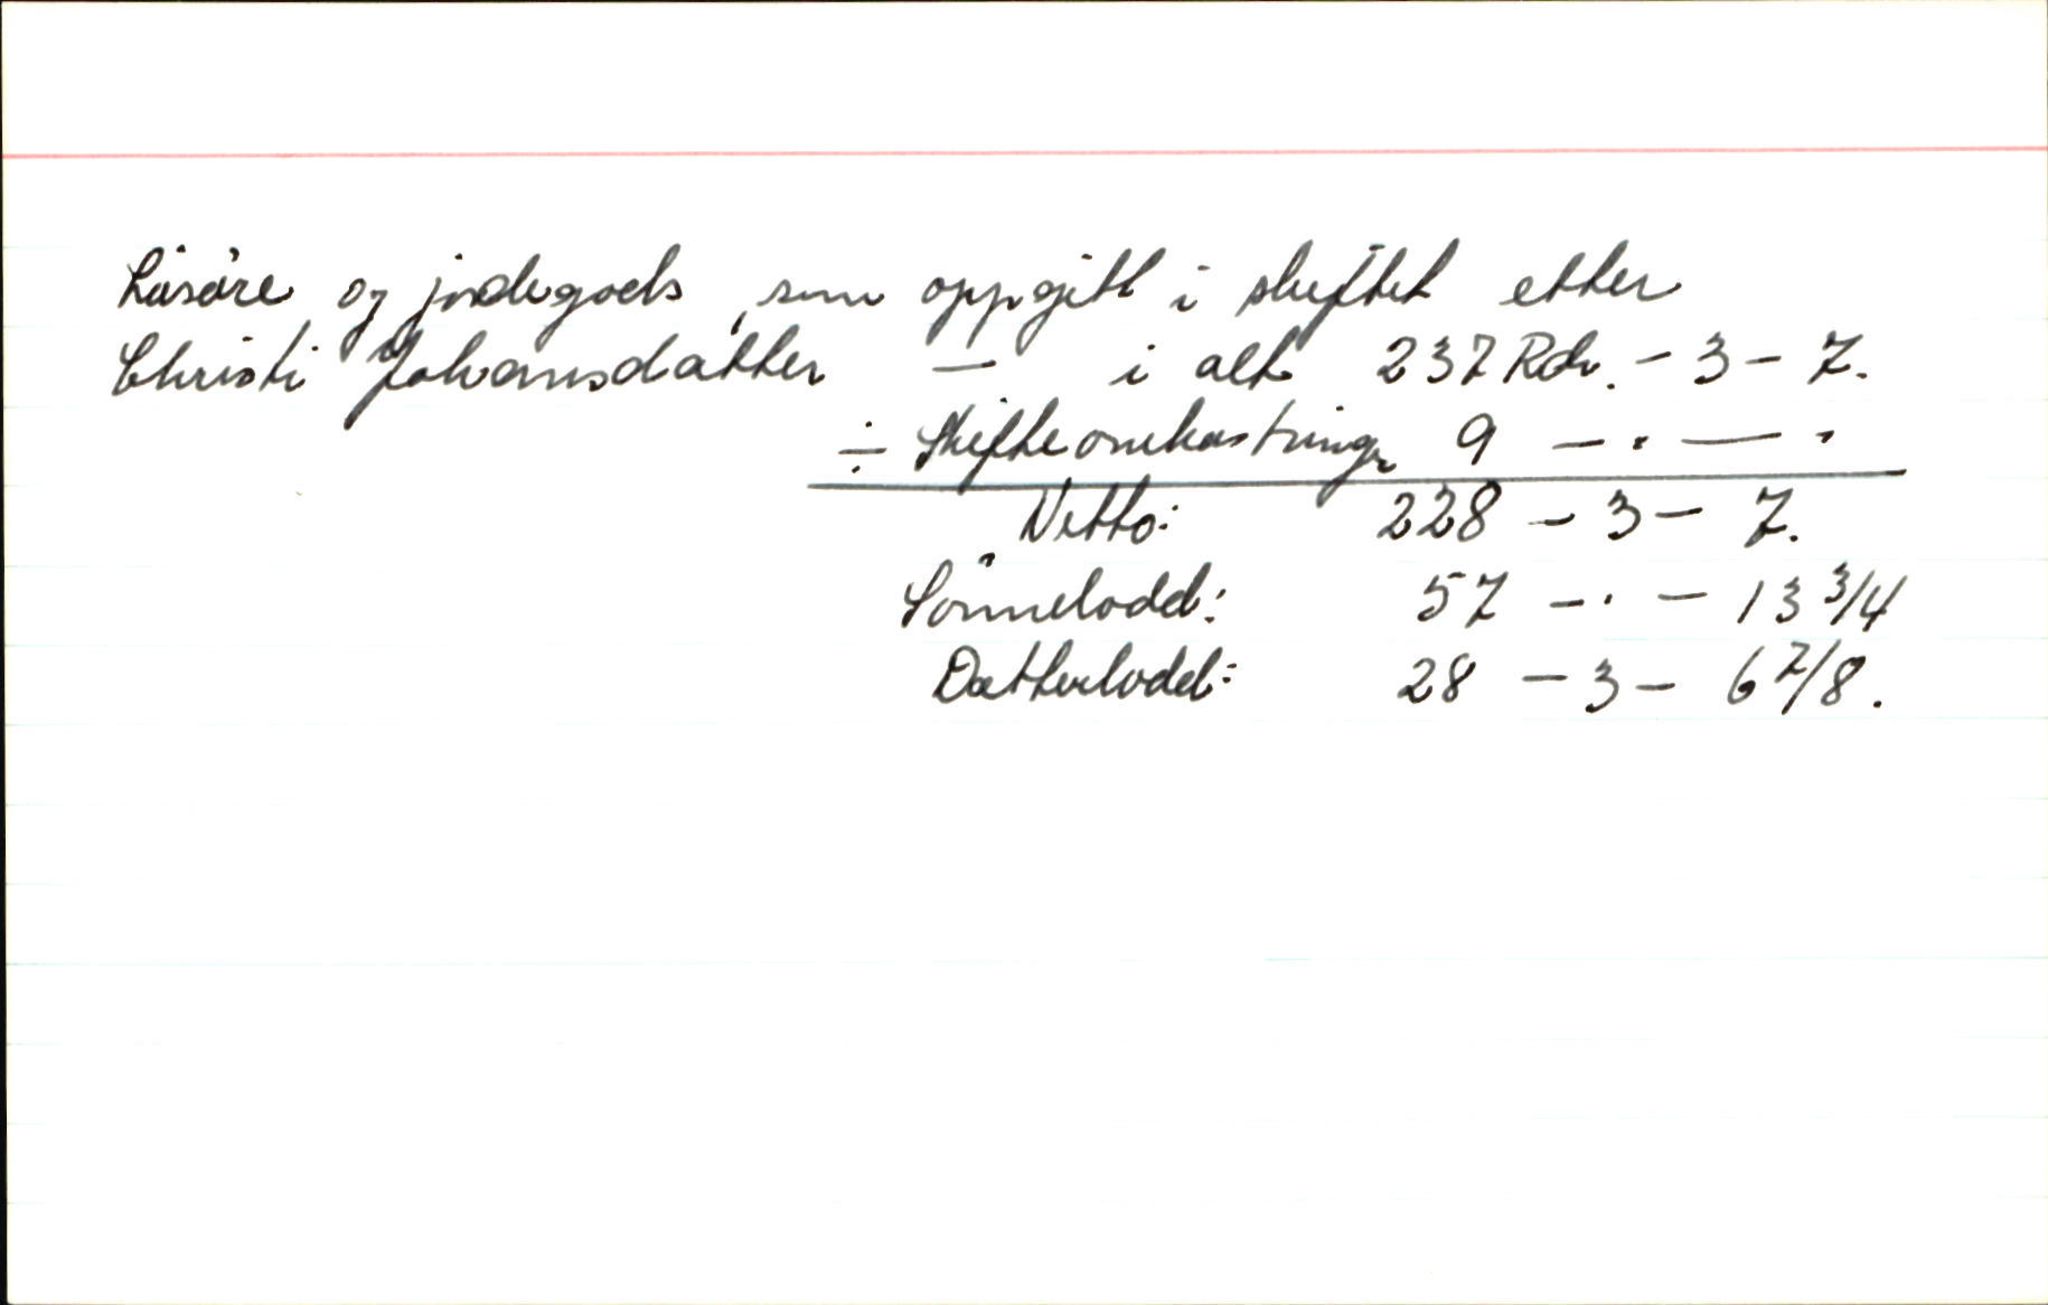 Lösöre og jordegods, som oppgitt i skiftet etter
Christi Johansdatter — i alt 237 Rdr. - 3 - 7.
÷ Skifteomkostninger 9 - . — .
Netto: 228 - 3 - 7.
Sönnelodd: 57 - . - 13 3/4
Datterlodd: 28 - 3 - 6 7/8.